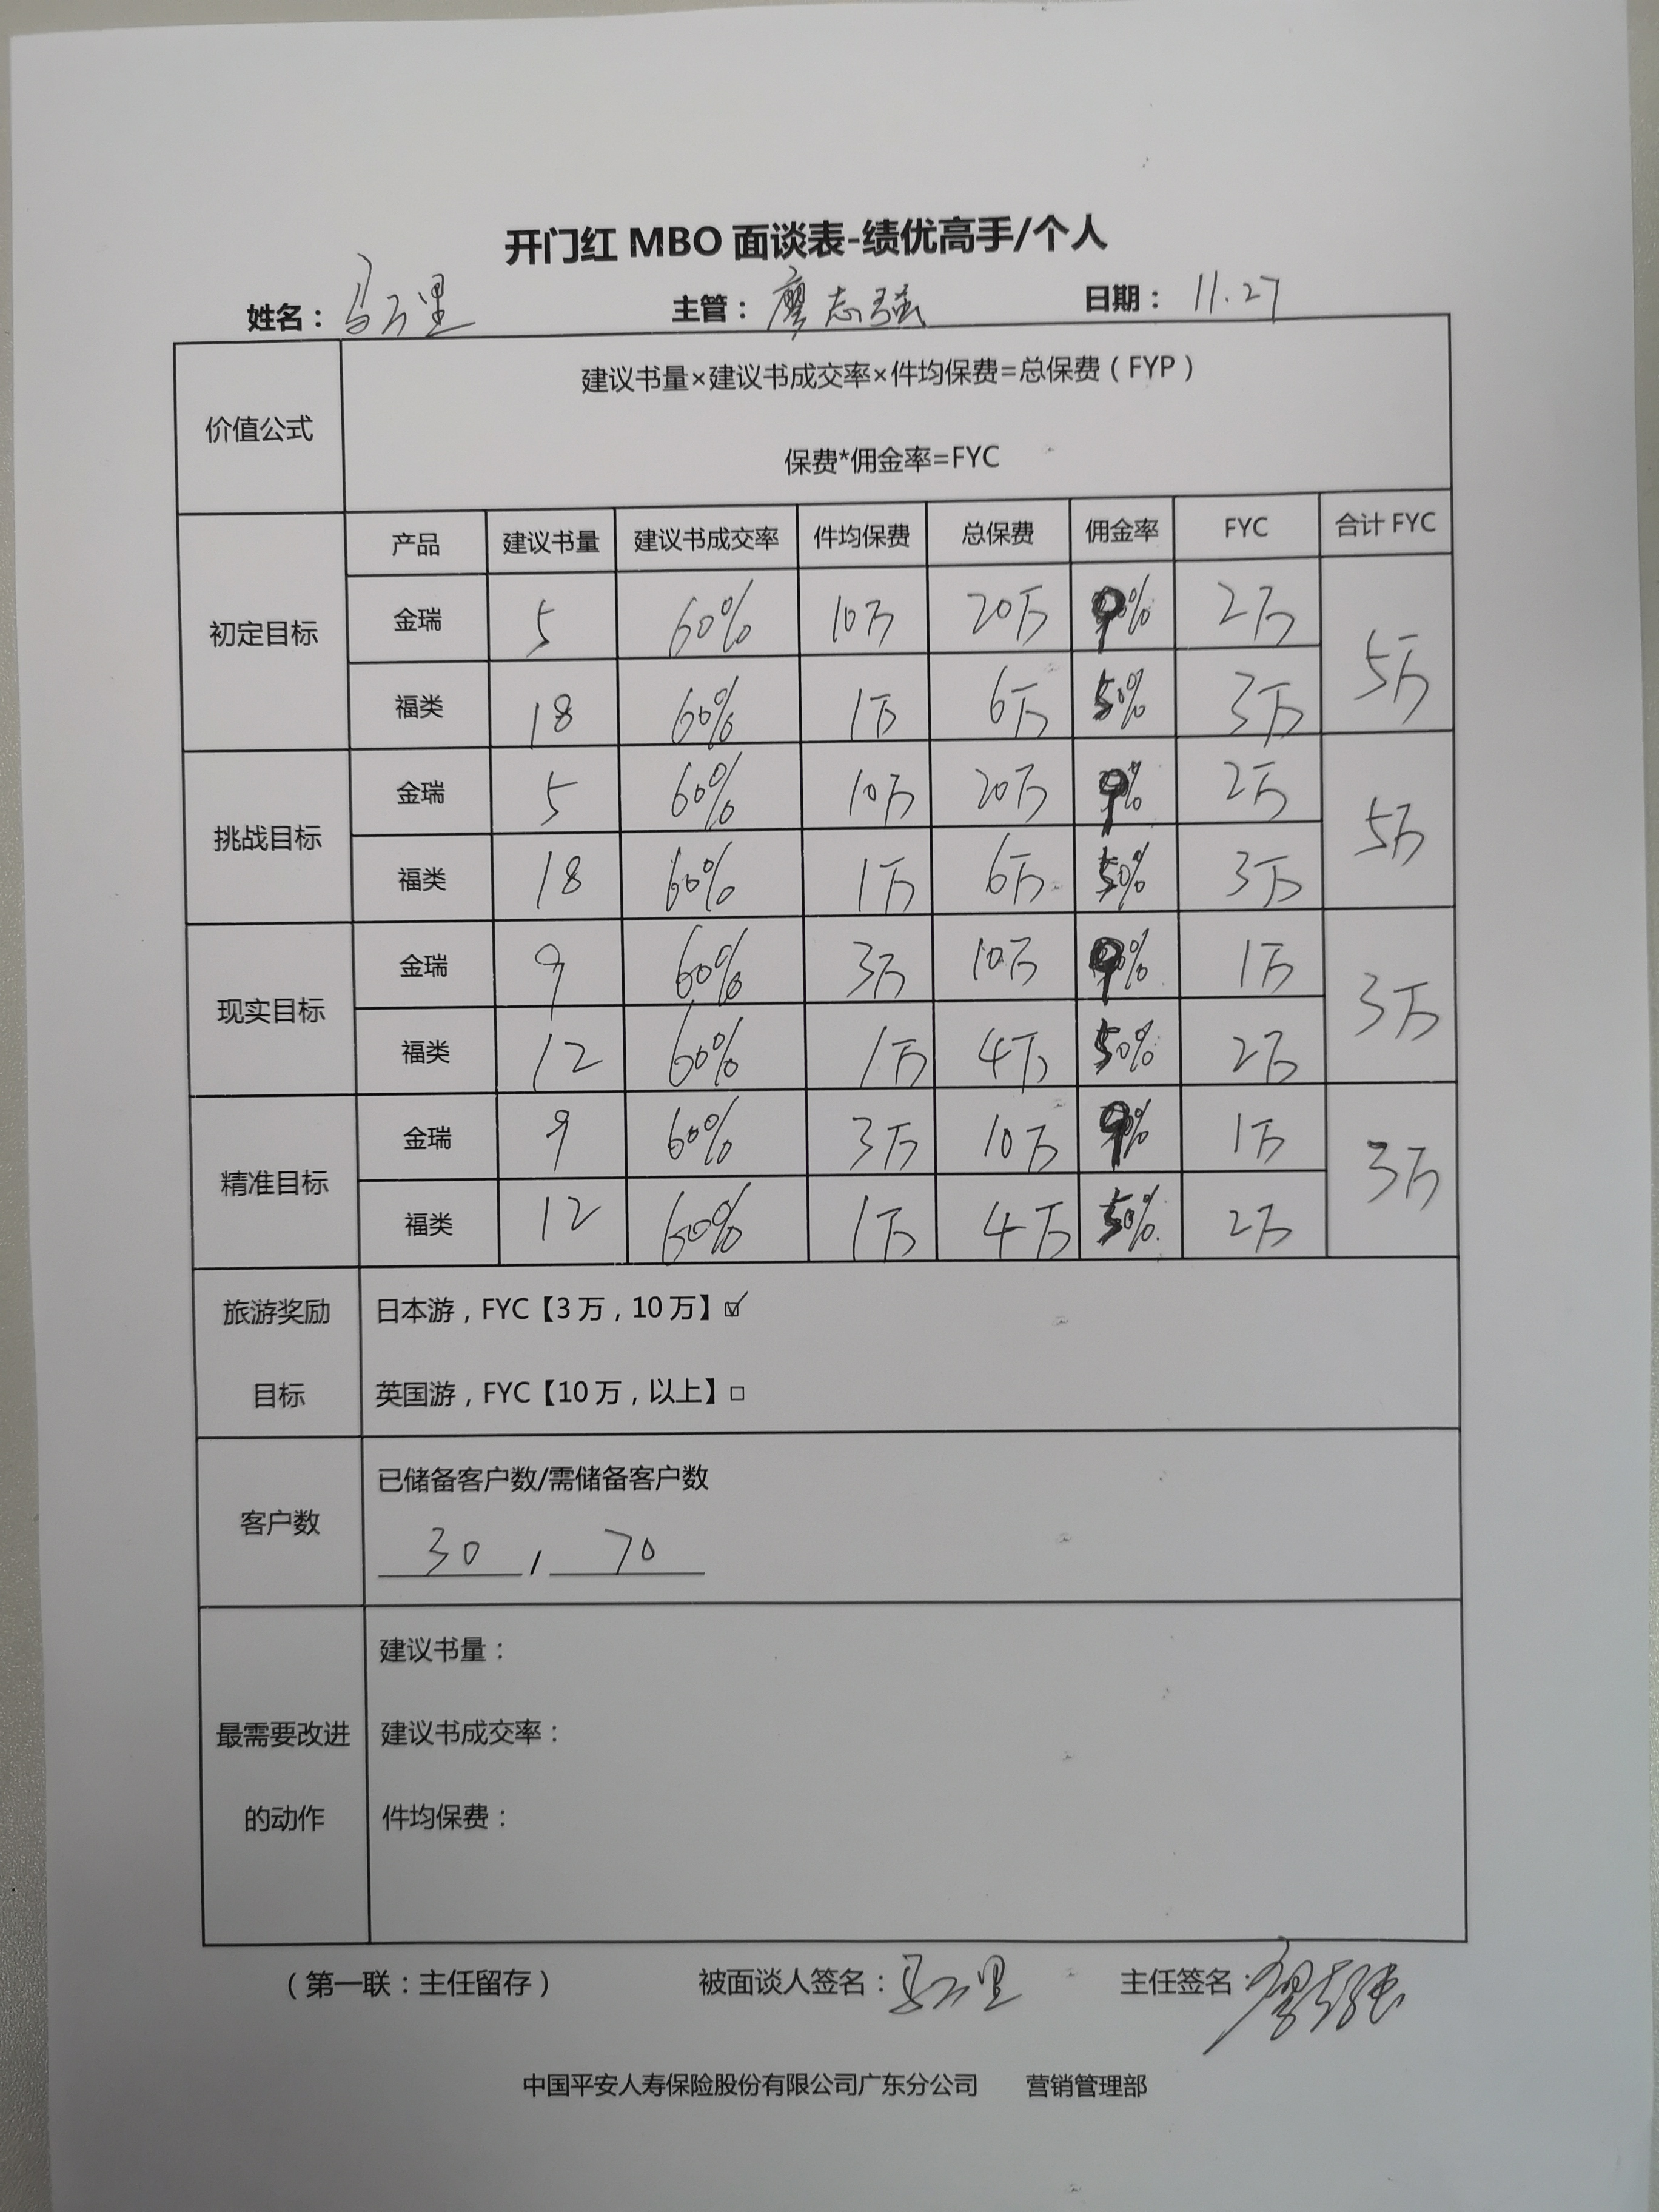 开门红 MBO 面谈表-绩优高手/个人
姓名： 主管：廖志强 日期：11.27
价值公式
建议书量×建议书成交率×件均保费=总保费（FYP）
保费*佣金率=FYC
产品 建议书量 建议书成交率 件均保费 总保费 佣金率 FYC 合计 FYC
初定目标
金瑞 5 60% 10万 20万 9% 2万
5万
福类 18 60% 1万 6万 50% 3万
挑战目标
金瑞 5 60% 10万 20万 9% 2万
5万
福类 18 60% 1万 6万 50% 3万
现实目标
金瑞 9 60% 3万 10万 9% 1万
3万
福类 12 60% 1万 4万 50% 2万
精准目标
金瑞 9 60% 3万 10万 9% 1万
3万
福类 12 60% 1万 4万 50% 2万
旅游奖励
目标
日本游，FYC【3 万，10 万】☑
英国游，FYC【10 万，以上】□
客户数
已储备客户数/需储备客户数
30 / 70
最需要改进
的动作
建议书量：
建议书成交率：
件均保费：
（第一联：主任留存） 被面谈人签名： 主任签名：廖志强
中国平安人寿保险股份有限公司广东分公司 营销管理部